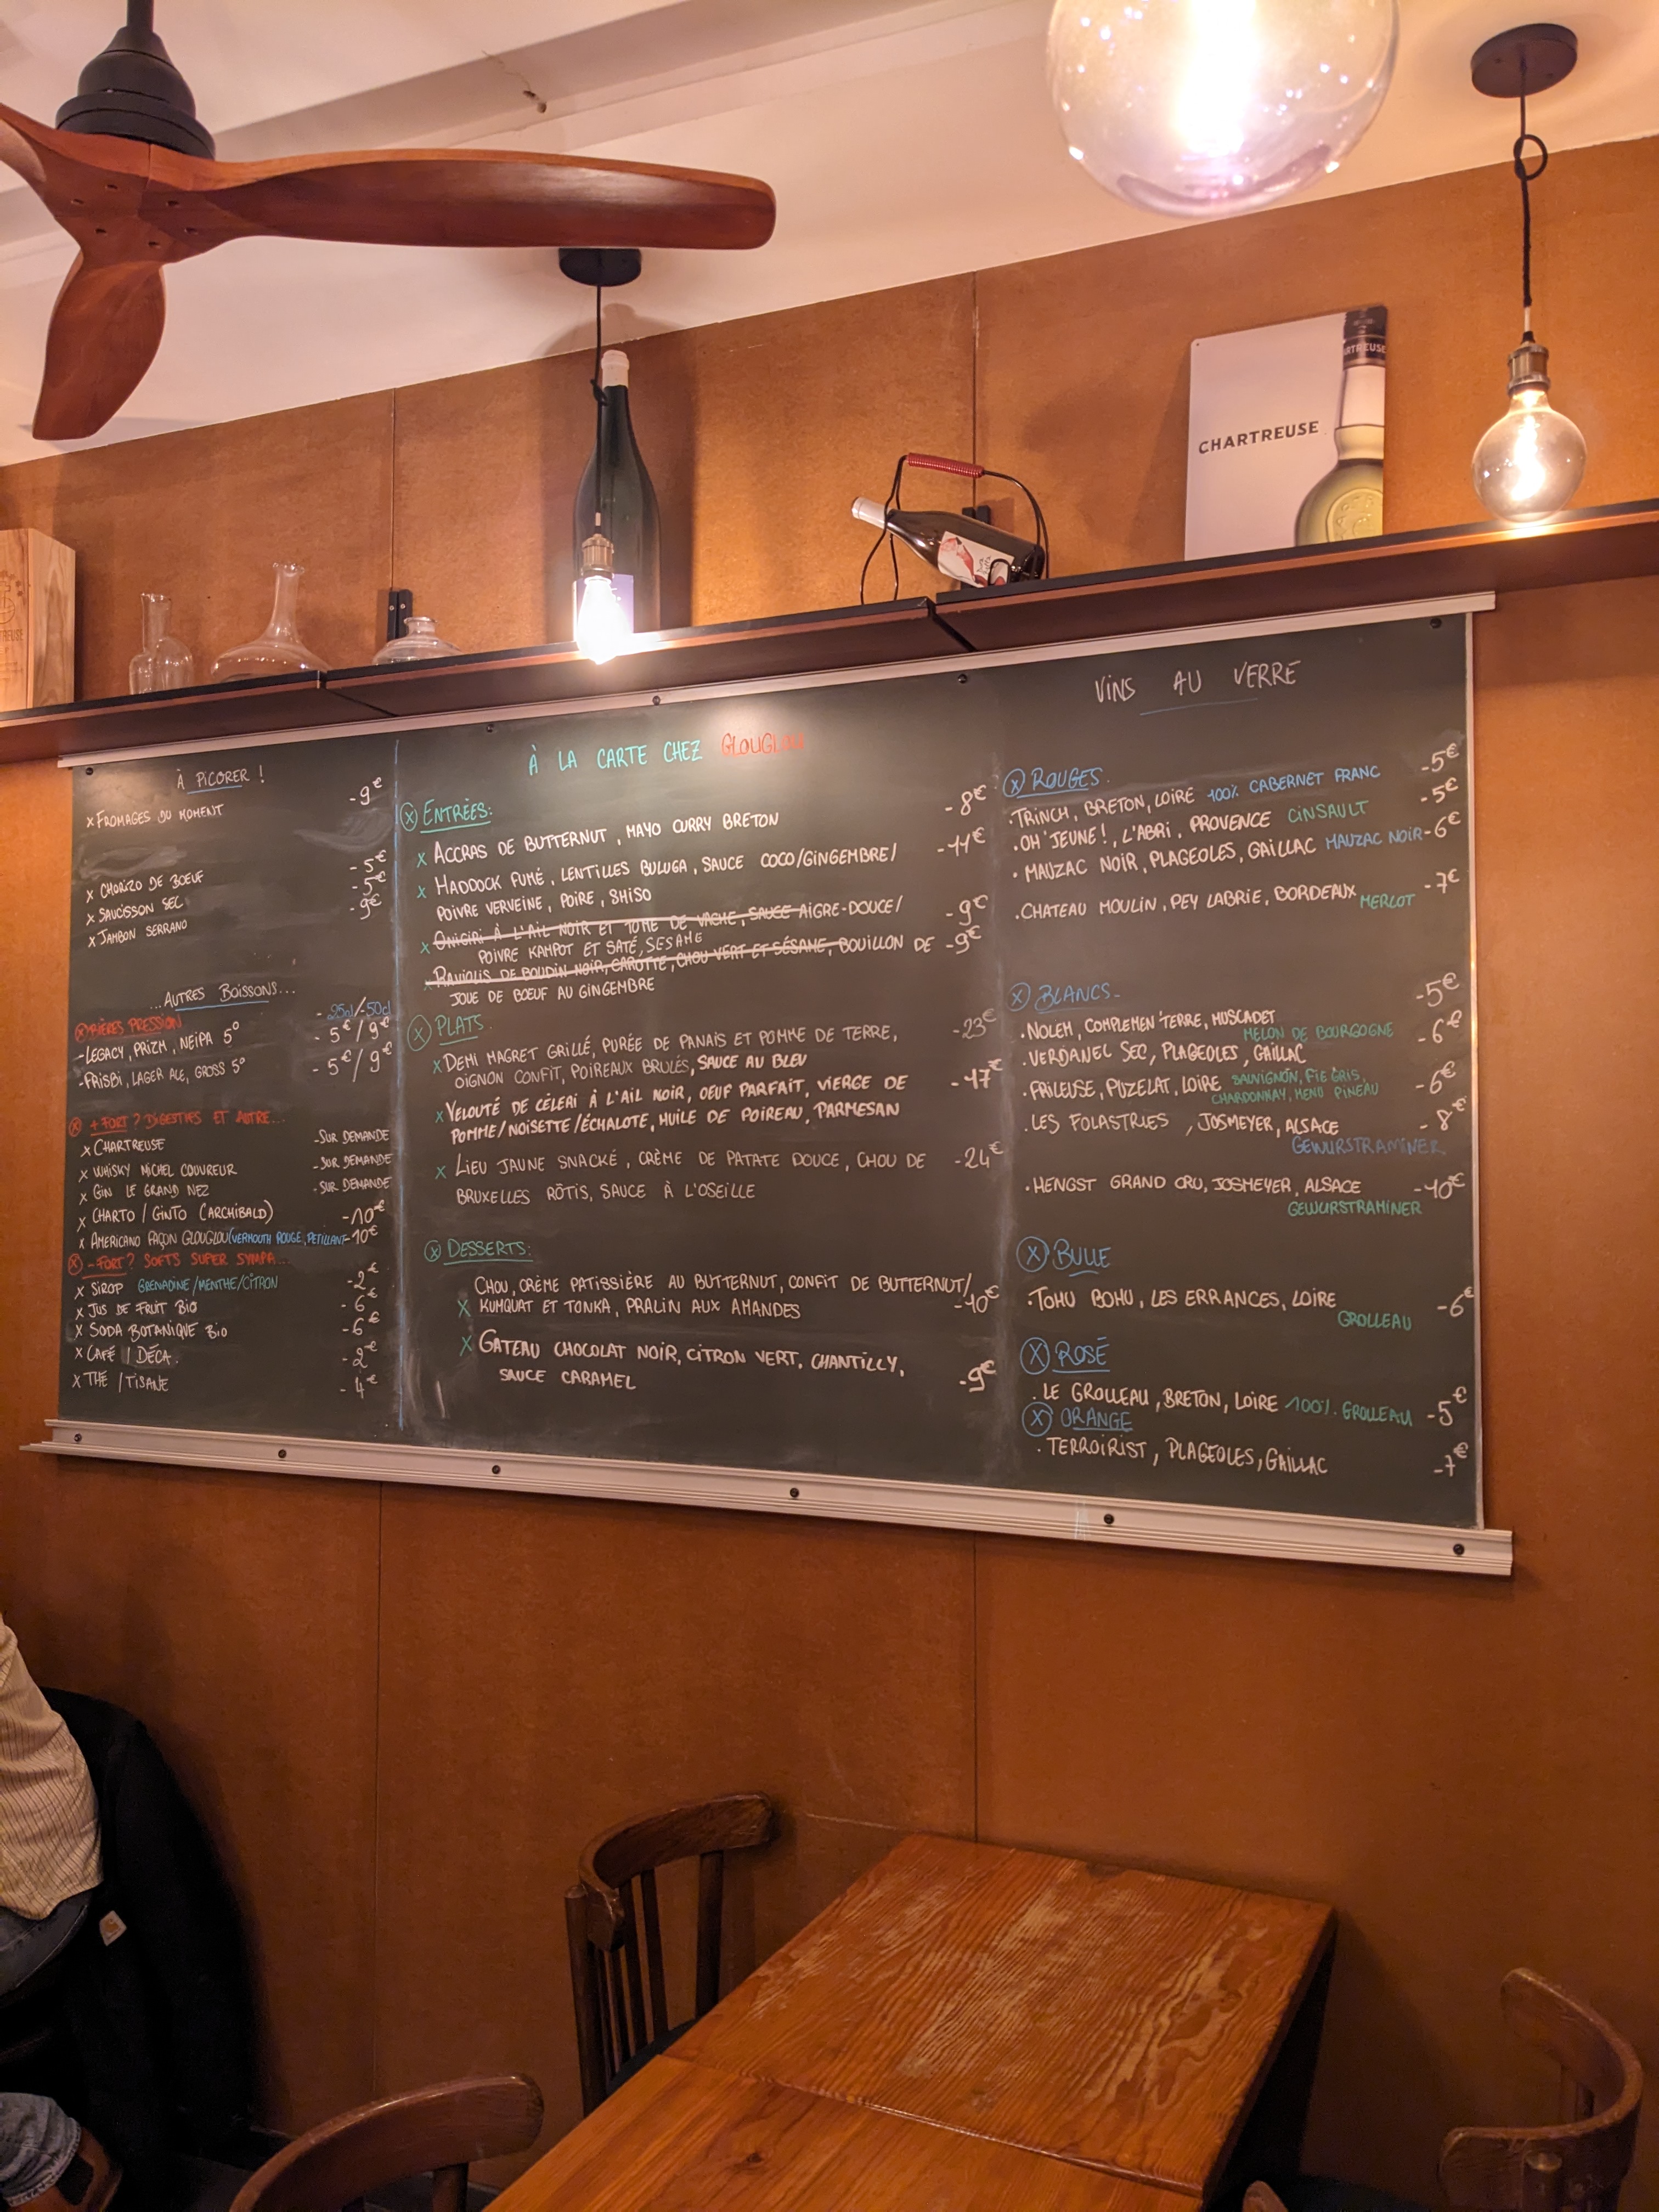 CHARTREUSE
À PICORER !
x FROMAGES DU MOMENT -9€
x CHORIZO DE BOEUF -5€
x SAUCISSON SEC -5€
x JAMBON SERRANO -9€
...AUTRES BOISSONS...
- 25cl/-50cl
x BIÈRES PRESSION
-LEGACY, PRIZM, NEIPA 5° - 5€/9€
-FRISBI, LAGER ALE, GROSS 5° - 5€/9€
x + FORT ? DIGESTIFS ET AUTRE...
x CHARTREUSE -SUR DEMANDE
x WHISKY MICHEL COUVREUR -SUR DEMANDE
x GIN LE GRAND NEZ -SUR DEMANDE
x CHARTO / GINTO (ARCHIBALD) -10€
x AMERICANO FAÇON GLOUGLOU (VERMOUTH ROUGE, PETILLANT -10€
x - FORT ? SOFTS SUPER SYMPA...
x SIROP GRENADINE/MENTHE/CITRON -2€
x JUS DE FRUIT BIO -6€
x SODA BOTANIQUE BIO -6€
x CAFÉ / DÉCA. -2€
x THÉ / TISANE -4€
À LA CARTE CHEZ GLOUGLOU
x ENTRÉES:
x ACCRAS DE BUTTERNUT, MAYO CURRY BRETON -8€
x HADDOCK FUMÉ, LENTILLES BULUGA, SAUCE COCO/GINGEMBRE/ -11€
POIVRE VERVEINE, POIRE, SHISO
x ONIGIRI À L'AIL NOIR ET TOME DE VACHE, SAUCE AIGRE-DOUCE/ -9€
POIVRE KAMPOT ET SATÉ, SESAME
x RAVIOLIS DE BOUDIN NOIR, CAROTTE, CHOU VERT ET SÉSAME, BOUILLON DE -9€
JOUE DE BŒUF AU GINGEMBRE
x PLATS.
x DEMI MAGRET GRILLÉ, PURÉE DE PANAIS ET POMME DE TERRE, -23€
OIGNON CONFIT, POIREAUX BRULÉS, SAUCE AU BLEU
x VELOUTÉ DE CÉLERI À L'AIL NOIR, OEUF PARFAIT, VIERGE DE -17€
POMME/NOISETTE/ÉCHALOTE, HUILE DE POIREAU, PARMESAN
x LIEU JAUNE SNACKÉ, CRÈME DE PATATE DOUCE, CHOU DE -24€
BRUXELLES RÔTIS, SAUCE À L'OSEILLE
x DESSERTS:
CHOU, CRÈME PATISSIÈRE AU BUTTERNUT, CONFIT DE BUTTERNUT/
x KUMQUAT ET TONKA, PRALIN AUX AMANDES -10€
x GATEAU CHOCOLAT NOIR, CITRON VERT, CHANTILLY,
SAUCE CARAMEL -9€
VINS AU VERRE
x ROUGES.
.TRINCH, BRETON, LOIRE 100% CABERNET FRANC -5€
.OH 'JEUNE!, L'ABRI, PROVENCE CINSAULT -5€
. MAUZAC NOIR, PLAGEOLES, GAILLAC MAUZAC NOIR -6€
.CHATEAU MOULIN, PEY LABRIE, BORDEAUX MERLOT -7€
x BLANCS- -5€
.NOLEM, COMPLEMEN'TERRE, MUSCADET
MELON DE BOURGOGNE
.VERDANEL SEC, PLAGEOLES, GAILLAC -6€
.FRILEUSE, PUZELAT, LOIRE SAUVIGNON, FIE GRIS, -6€
CHARDONNAY, MENU PINEAU
.LES FOLASTRIES, JOSMEYER, ALSACE -8€
GEWURSTRAMINER
.HENGST GRAND CRU, JOSMEYER, ALSACE -10€
GEWURSTRAMINER
x BULLE
.TOHU BOHU, LES ERRANCES, LOIRE -6€
GROLLEAU
x ROSÉ
.LE GROLLEAU, BRETON, LOIRE 100%. GROLLEAU -5€
x ORANGE
.TERROIRIST, PLAGEOLES, GAILLAC -7€